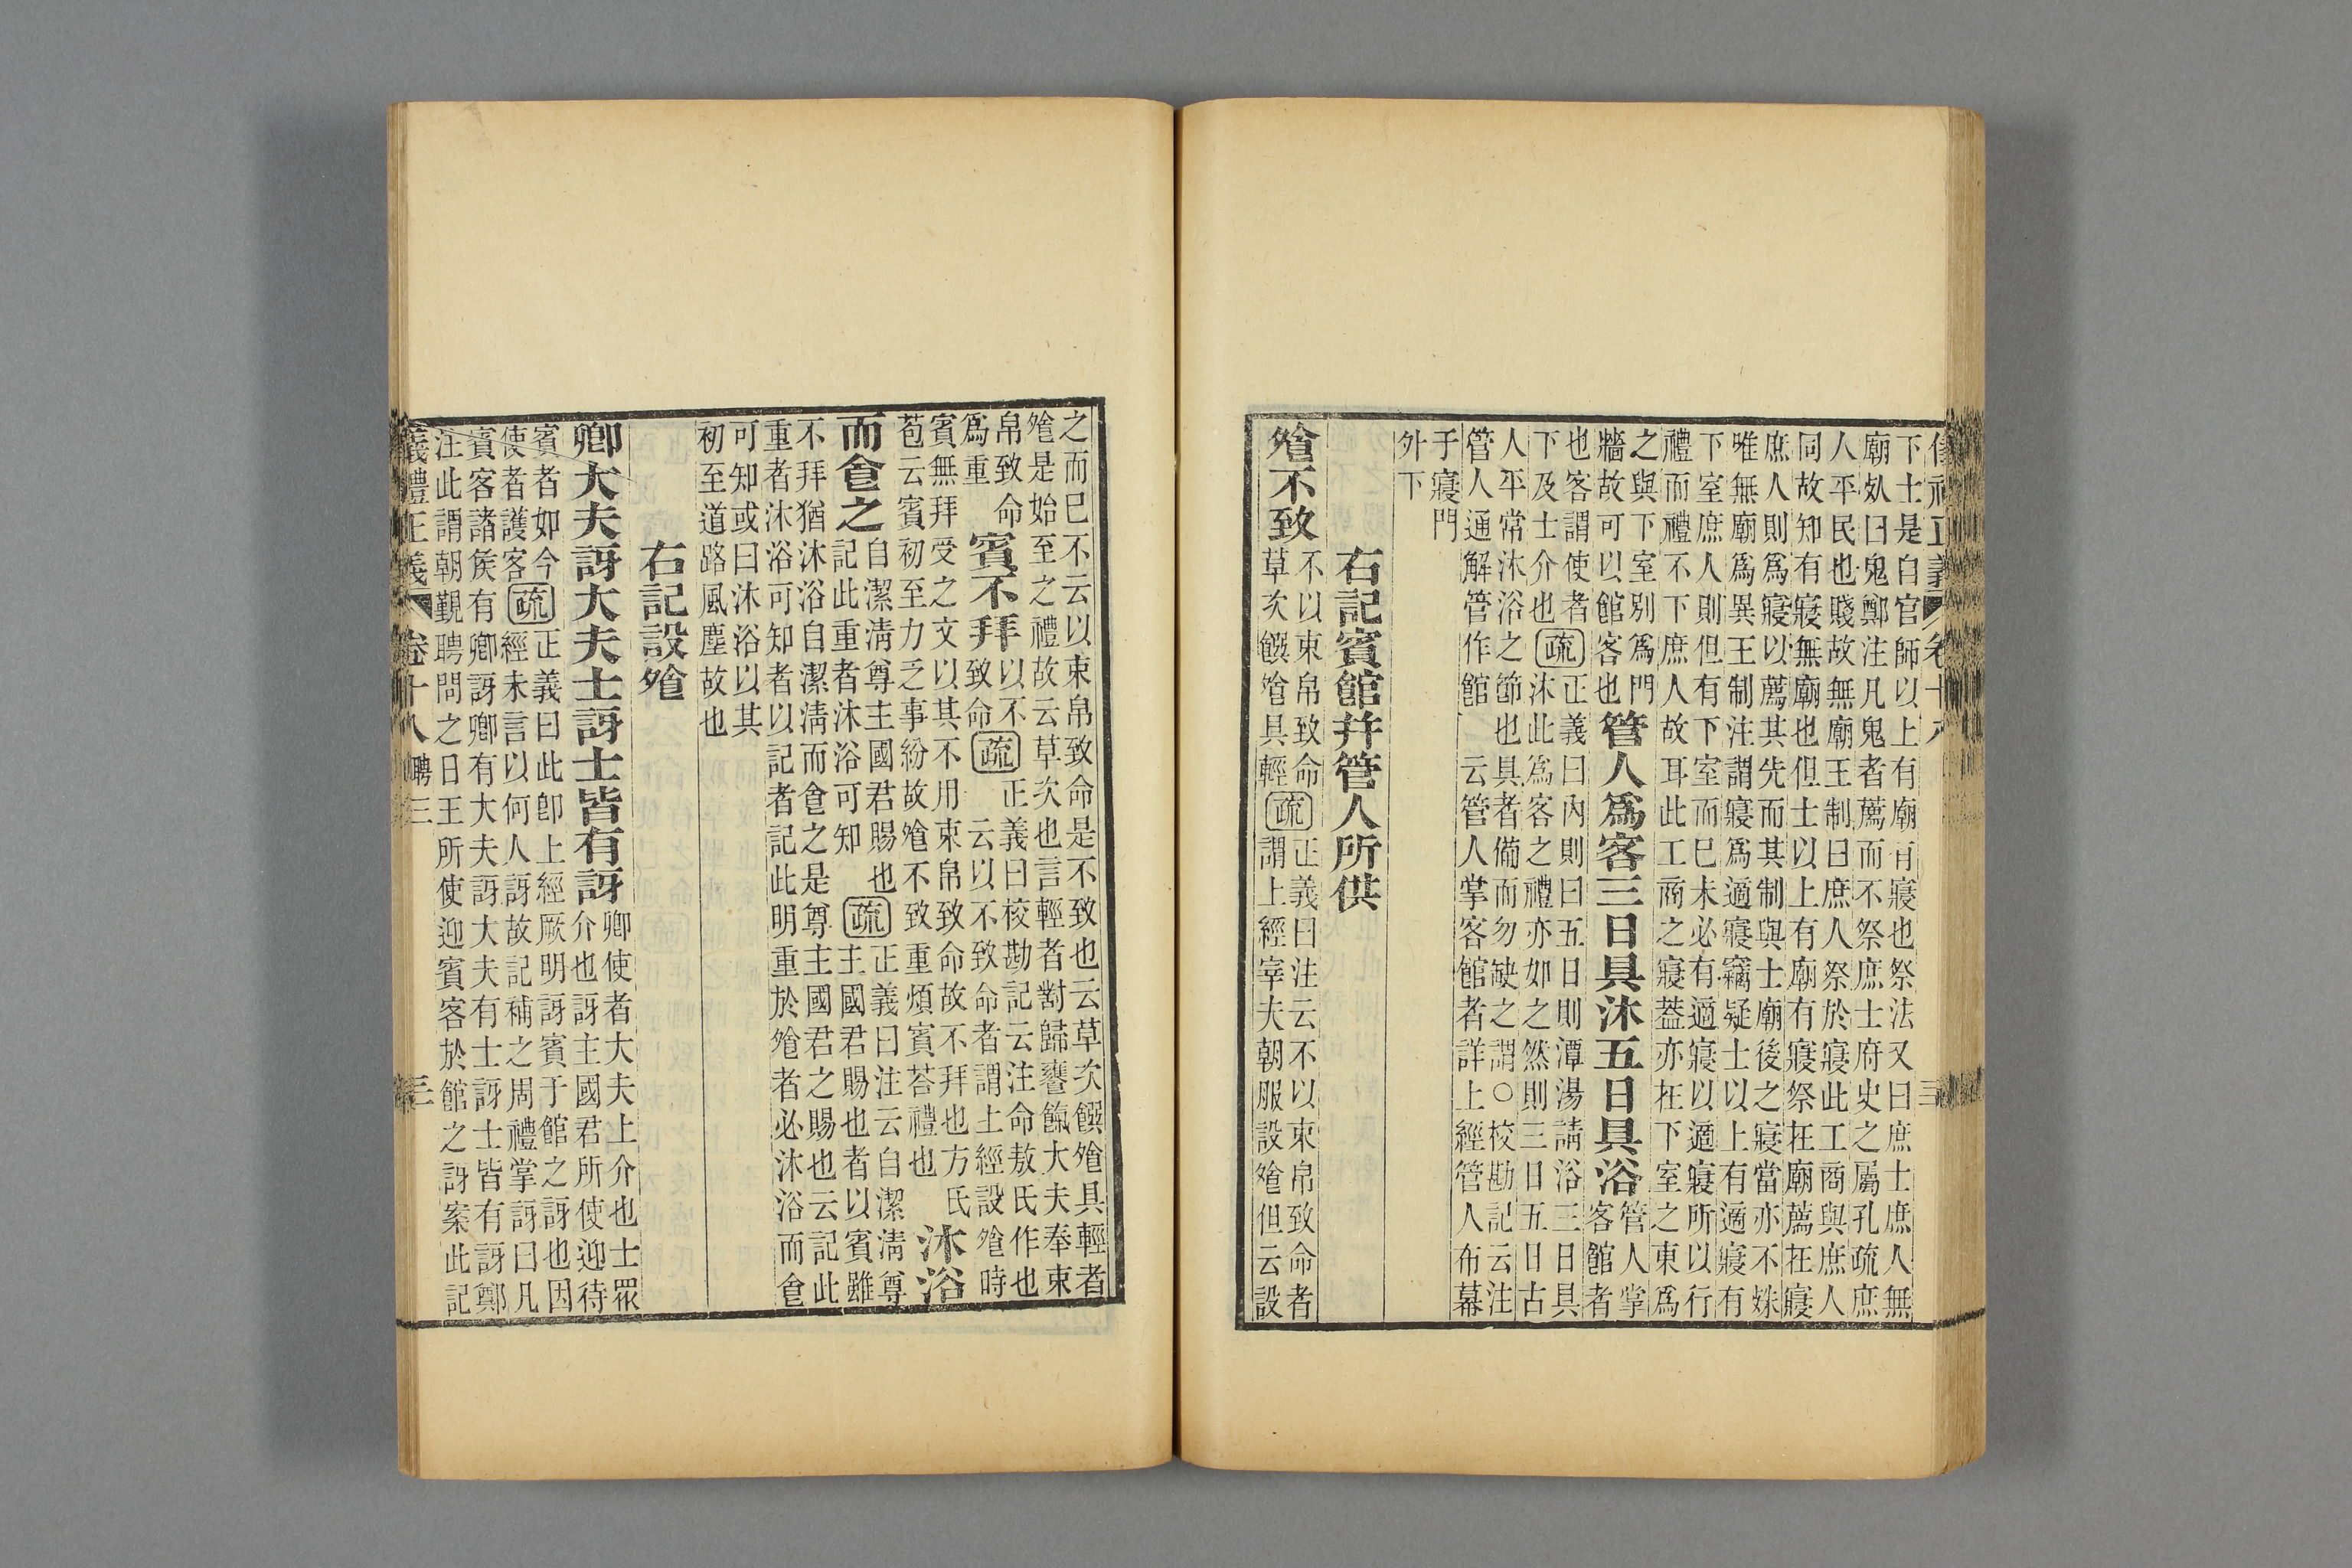 下士是自官師以上有廟有寢也祭法又曰庶士庶人無
廟死曰鬼鄭注凡鬼者薦而不祭庶士府史之屬孔疏庶
人平民也賤故無廟王制曰庶人祭於寢此工商與庶人
同故知有寢無廟也但士以上有廟有寢祭在廟薦在寢
庶人則爲寢以薦其先而其制與士廟後之寢當亦不殊
唯無廟爲異王制注謂寢爲適寢竊疑士以上有適寢有
下室庶人則但有下室而已未必有適寢以適寢所以行
禮而禮不下庶人故耳此工商之寢葢亦在下室之東爲
之與下室別爲門
牆故可以館客也
管人爲客三日具沐五日具浴
管人掌
客館者
也客謂使者
下及士介也
疏
正義曰內則曰五日則潭湯請浴三日具
沐此爲客之禮亦如之然則三日五日古
人平常沐浴之節也具者備而勿缺之謂○校勘記云注
管人通解管作館　云管人掌客館者詳上經管人布幕
于寢門
外下
右記賓館幷管人所供
飧不致
不以束帛致命
草次饌飧具輕
疏
正義曰注云不以束帛致命者
謂上經宰夫朝服設飧但云設
之而已不云以束帛致命是不致也云草次饌飧具輕者
飧是始至之禮故云草次也言輕者對歸饔餼大夫奉束
帛致命
爲重
賓不拜
以不
致命
疏
正義曰校勘記云注命敖氏作也
云以不致命者謂上經設飧時
賓無拜受之文以其不用束帛致命故不拜也方氏
苞云賓初至力乏事紛故飧不致重煩賓荅禮也
沐浴
而食之
自潔淸尊主國君賜也
記此重者沐浴可知
疏
正義曰注云自潔淸尊
主國君賜也者以賓雖
不拜猶沐浴自潔淸而食之是尊主國君之賜也云記此
重者沐浴可知者以記者記此明重於飧者必沐浴而食
可知或曰沐浴以其
初至道路風塵故也
右記設飧
卿大夫訝大夫士訝士皆有訝
卿使者大夫上介也士眾
介也訝主國君所使迎待
賓者如今
使者護客
疏
正義曰此卽上經厥明訝賓于館之訝也因
經未言以何人訝故記補之周禮掌訝曰凡
賓客諸侯有卿訝卿有大夫訝大夫有士訝士皆有訝鄭
注此謂朝覲聘問之日王所使迎賓客於館之訝案此記
儀禮正義　卷十八　聘三　三